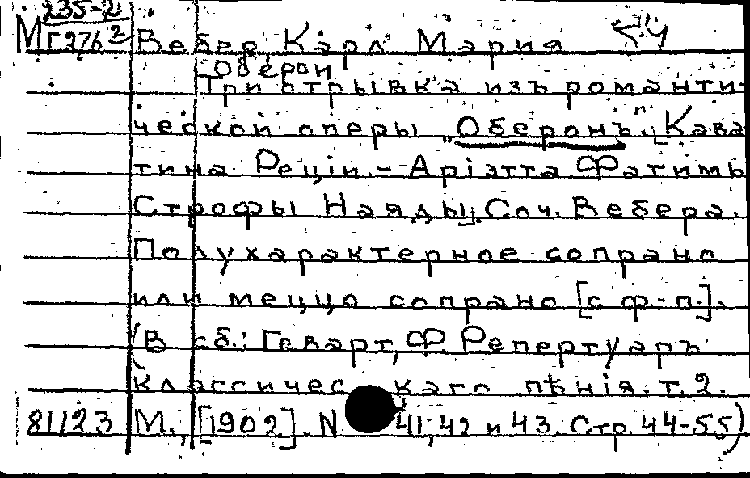 235-2
М Г276² Вебер Карл Мария 54
Оберон
Три отрывка изъ романти-
ческой оперы "Оберонъ". [Кава
тина Реціи. - Аріэтта Фатимы
Строфы Наяды]. Соч. Вебера.
Полухарактерное сопрано
или меццо сопрано [с ф-п.].
(В сб.: Геварт, Ф. Репертуаръ
классическаго пѣнія. т. 2.
81123 М., [1902]. N 41, 42 и 43. Стр. 44-55)